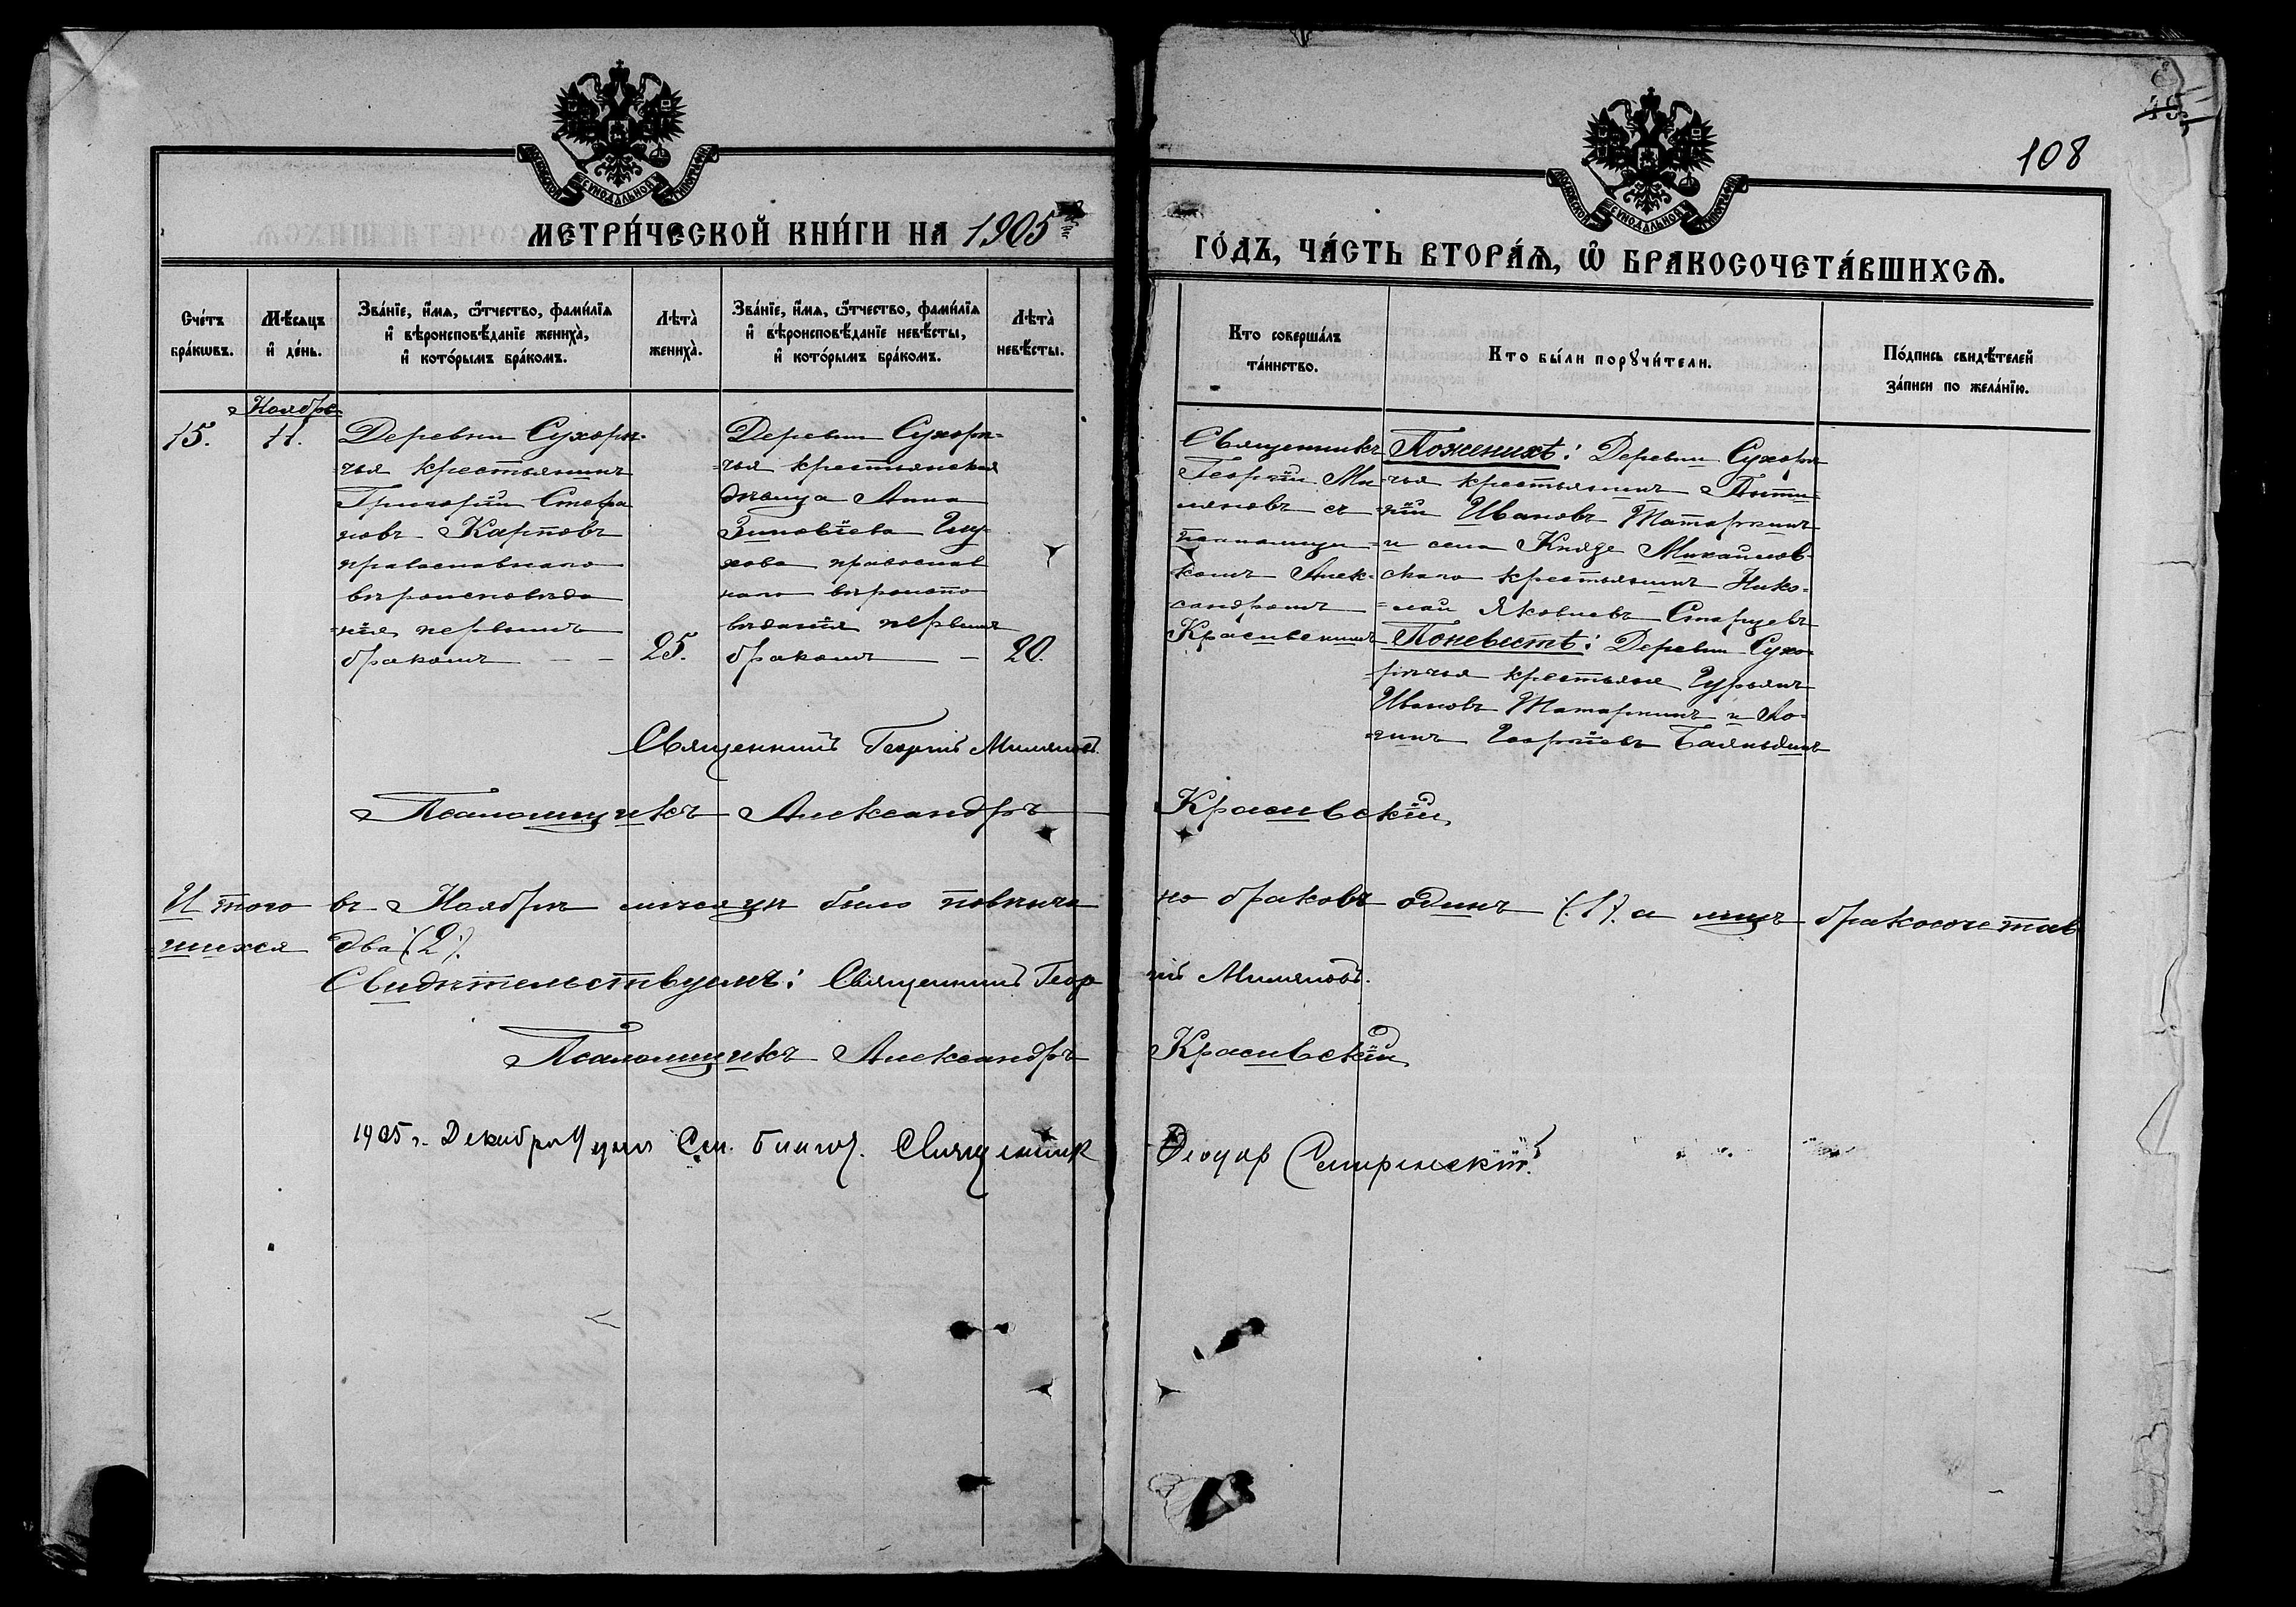 108
МОСКОВСКОЙ СѴНОДАЛЬНОЙ ТИПОГРАФІИ
МЕТРИ́ЧЕСКОЙ КНИ́ГИ НА 1905
МОСКОВСКОЙ СѴНОДАЛЬНОЙ ТИПОГРАФІИ
ГО́ДЪ, ЧА́СТЬ ВТОРА́Ѧ, Ѡ҆ БРАКОСОЧЕТА́ВШИХСѦ.
Сче́тъ
бра́кѡвъ.
Мѣ́сѧцъ
и҆ де́нь.
Зва́нїе, и҆́мѧ, ѻ҆́тчество, фами́лїѧ
и҆ вѣроисповѣ́данїе жениха̀,
и҆ кото́рымъ бра́комъ.
Лѣта̀
жениха̀.
Зва́нїе, и҆́мѧ, ѻ҆́тчество, фами́лїѧ
и҆ вѣроисповѣ́данїе невѣ́сты,
и҆ кото́рымъ бра́комъ.
Лѣта̀
невѣ́сты.
Кто соверша́лъ
та́инство.
Кто бы́ли порꙋчи́тели.
По́дпись свидѣ́телей
за́писи по жела́нїю.
15.
Ноябрь
11.
Деревни Сухорѣ-
чья крестьянинъ
Григорій Стефа
новъ Карповъ
православнаго
вѣроисповѣда
нія первымъ
бракомъ
25.
Деревни Сухорѣ-
чья крестьянская
дѣвица Анна
Зиновіева Глу-
хова православ
наго вѣроиспо
вѣданія первымъ
бракомъ
20.
Священникъ
Георгій Ми-
ляновъ съ
псаломщи-
комъ Алек-
сандромъ
Красивскимъ
По женихѣ: Деревни Сухорѣ
чья крестьянинъ
Ивановъ Татаркинъ
и села Княже Михайлов-
скаго крестьянинъ Нико-
лай Яковлевъ Старцевъ
По невѣстѣ: Деревни Сухо-
рѣчья крестьяне Гурьянъ
Ивановъ Татаркинъ и Ло-
гинъ Георгіевъ
Священникъ Георгій Миляновъ
Псаломщикъ Александръ Красивскій
Итого въ Ноябрѣ мѣсяцѣ было повѣнча но браковъ одинъ (1) а лицъ бракосочетав
шихся два (2).
Свидѣтельствуемъ: Священникъ Георгій Миляновъ.
Псаломщикъ Александръ Красивскій
1905 г. Декабря 9 дня См. Благоч. Священник Ѳеодор